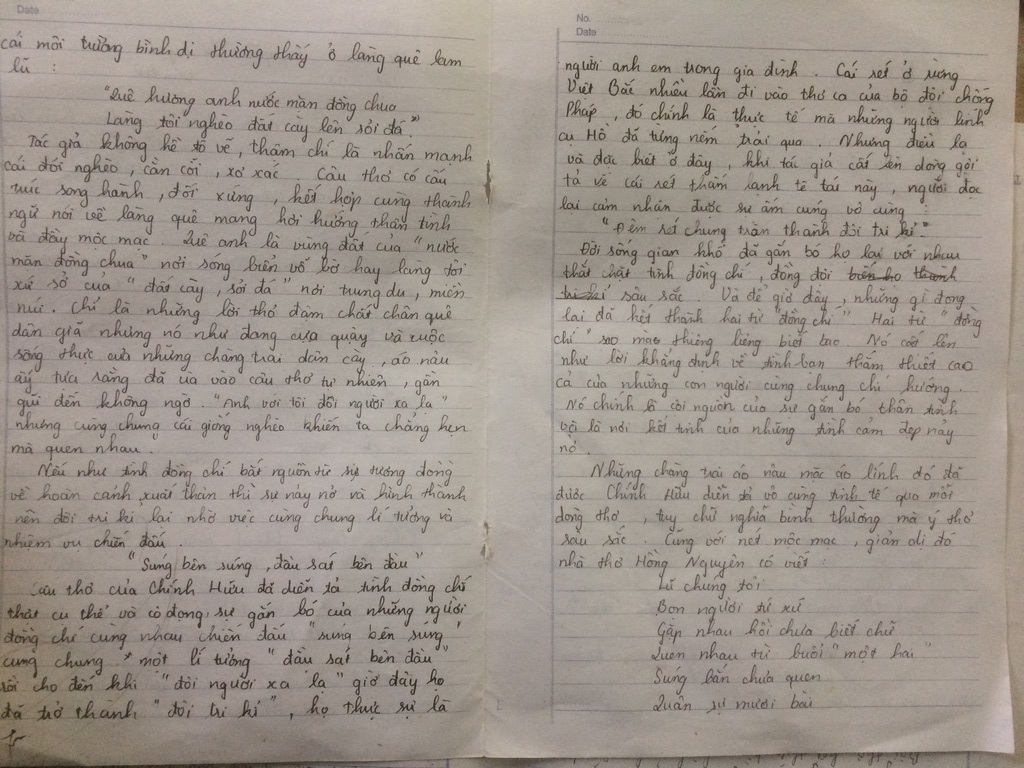 Date
cái môi trường bình dị thường thấy ở làng quê lam
lũ :
"Quê hương anh nước mặn đồng chua
Làng tôi nghèo đất cày lên sỏi đá"
Tác giả không hề tô vẽ, thậm chí là nhấn mạnh
cái đói nghèo, cằn cỗi, xơ xác. Câu thơ có cấu
trúc song hành, đối xứng, kết hợp cùng thành
ngữ nói về làng quê mang hơi hướng thân tình
và đầy mộc mạc. Quê anh là vùng đất của "nước
mặn đồng chua" nơi sóng biển vỗ bờ hay làng tôi
xứ sở của "đất cày, sỏi đá" nơi trung du, miền
núi. Chỉ là những lời thơ đậm chất chân quê
dân giã nhưng nó như đang cựa quậy và cuộc
sống thực của những chàng trai dân cày, áo nâu
ấy tựa rằng đã ùa vào câu thơ tự nhiên, gần
gũi đến không ngờ. "Anh với tôi đôi người xa lạ"
nhưng cùng chung cái giống nghèo khiến ta chẳng hẹn
mà quen nhau.
Nếu như tình đồng chí bắt nguồn từ sự tương đồng
về hoàn cảnh xuất thân thì sự nảy nở và hình thành
nên đôi tri kỉ lại nhờ việc cùng chung lí tưởng và
nhiệm vụ chiến đấu.
"Súng bên súng, đầu sát bên đầu"
Câu thơ của Chính Hữu đã diễn tả tình đồng chí
thật cụ thể và cô đọng, sự gắn bó của những người
đồng chí cùng nhau chiến đấu "súng bên súng"
cùng chung một lí tưởng "đầu sát bên đầu"
rồi cho đến khi "đôi người xa lạ" giờ đây họ
đã trở thành "đôi tri kỉ", họ thực sự là
No.
Date
người anh em trong gia đình. Cái rét ở rừng
Việt Bắc nhiều lần đi vào thơ ca của bộ đội chống
Pháp, đó chính là thực tế mà những người lính
cụ Hồ đã từng nếm trải qua. Nhưng điều lạ
và đặc biệt ở đây, khi tác giả cất lên dòng gợi
tả về cái rét thấm lạnh tê tái này, người đọc
lại cảm nhận được sự ấm cúng vô cùng :
"Đêm rét chung trăn thành đôi tri kỉ"
Đời sống gian khổ đã gắn bó họ lại với nhau
thắt chặt tình đồng chí, đồng đội biến họ thành
tri kỉ sâu sắc. Và để giờ đây, những gì đọng
lại đã kết thành hai từ "đồng chí". Hai từ "đồng
chí" sao mà thiêng liêng biết bao. Nó cất lên
như lời khẳng định về tình bạn thắm thiết cao
cả của những con người cùng chung chí hướng.
Nó chính là cội nguồn của sự gắn bó thân tình
và là nơi kết tinh của những tình cảm đẹp nảy
nở.
Những chàng trai áo nâu mặc áo lính đó đã
được Chính Hữu diễn tả vô cùng tinh tế qua mỗi
dòng thơ, tuy chữ nghĩa bình thường mà ý thơ
sâu sắc. Cùng với nét mộc mạc, giản dị đó
nhà thơ Hồng Nguyên có viết :
Lũ chúng tôi
Bọn người tứ xứ
Gặp nhau hồi chưa biết chữ
Quen nhau từ buổi "một hai"
Súng bắn chưa quen
Quân sự mươi bài